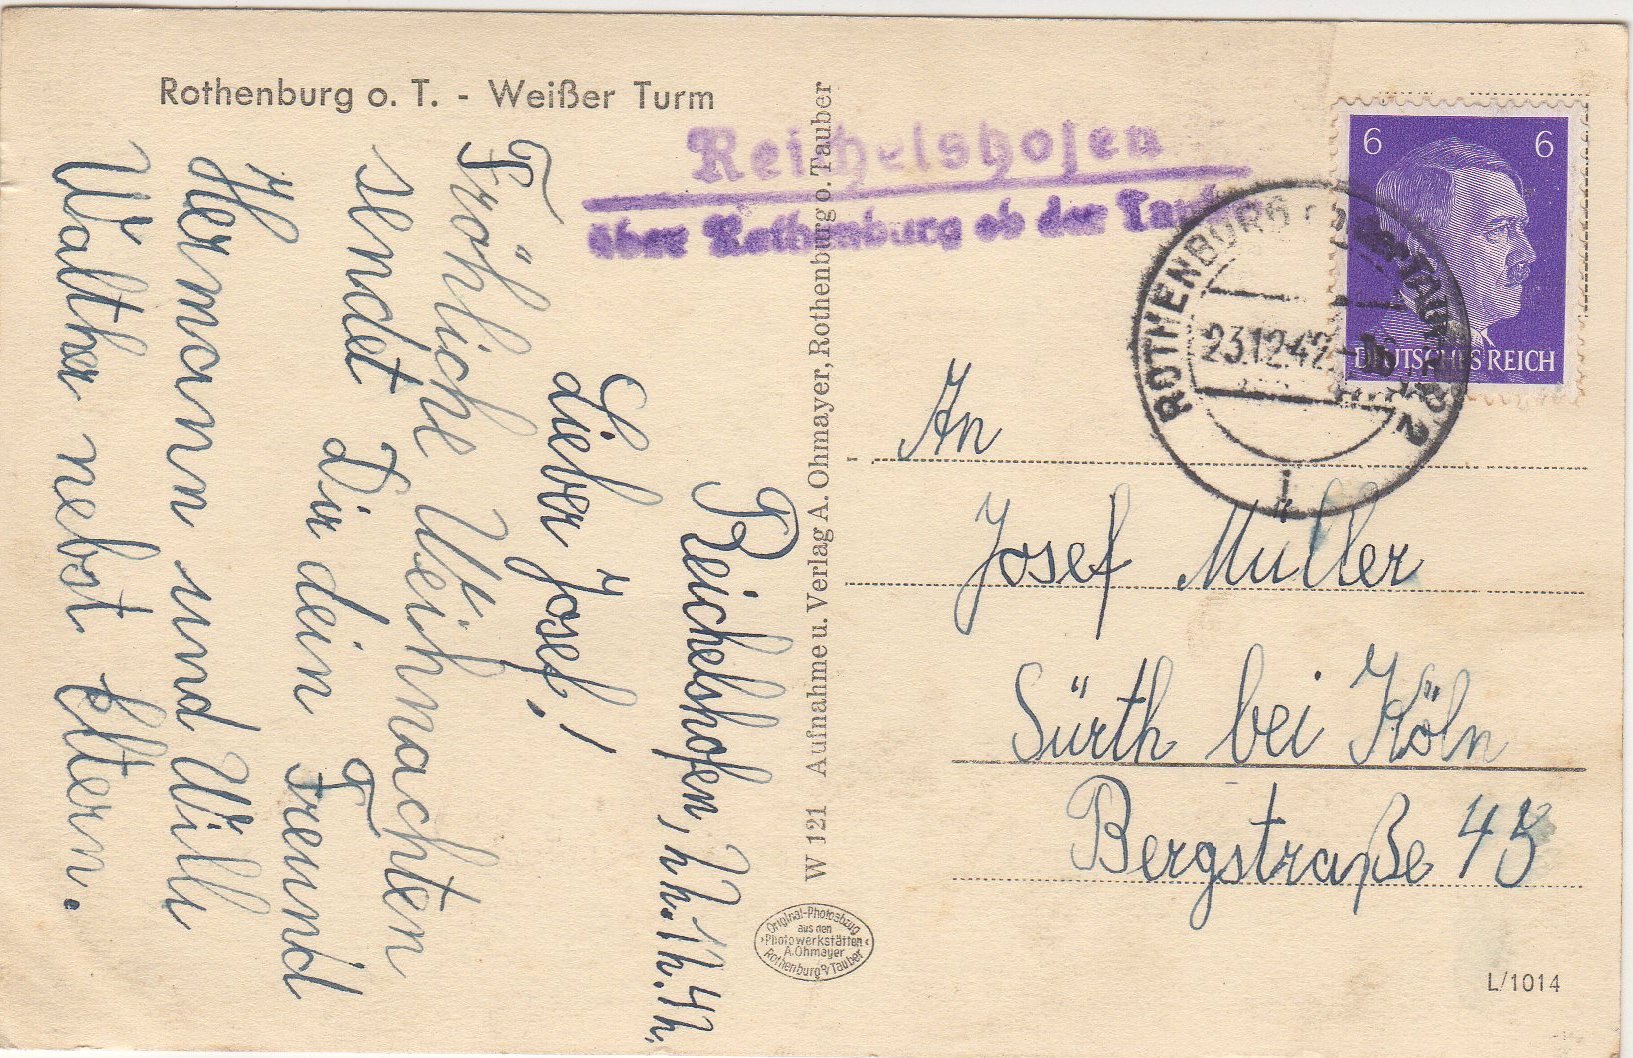 Rothenburg o. T. - Weißer Turm
Reichelshofen
über Rothenburg ob der Tauber
6 6
DEUTSCHES REICH
ROTHENBURG ob der TAUBER 2
23.12.42-16
Reichelshofen, 22.12.42.
Lieber Josef!
Fröhliche Weihnachten
sendet Dir dein Freund
Hermann und Willi
Walther nebst Eltern.
W 121 Aufnahme u. Verlag A. Ohmayer, Rothenburg o. Tauber
Original-Photoabzug
aus den
Photowerkstätten
A. Ohmayer
Rothenburg o/Tauber
An
Josef Muller
Sürth bei Köln
Bergstraße 45
L/1014